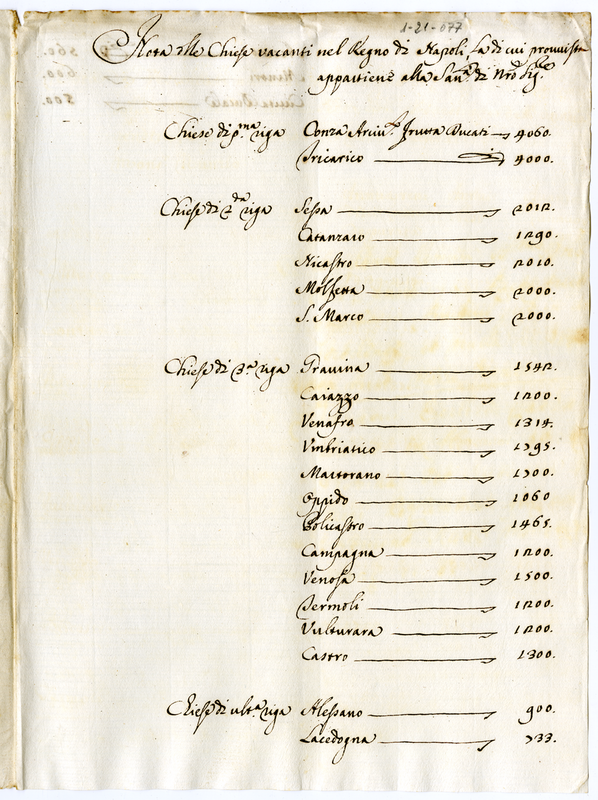 1-21-077
Nota delle Chiese vacanti nel Regno di Napoli, La di cui provvista
appartiene alla San.tà di Nrõ Sig.re
Chiese di p.ma riga Conza Arciu.to frutta Ducati 4060.
Tricarico 4000.
Chiese di 2.da riga Sessa 2012.
Catanzaro 1290.
Nicastro 2010.
Molfetta 2000.
S. Marco 2000.
Chiese di 3.a riga Gravina 1542.
Caiazzo 1200.
Venafro 1314.
Vmbriatico 1795.
Martorano 1700.
Oppido 1060
Policastro 1465.
Campagna 1200.
Venosa 1500.
Termoli 1200.
Vulturara 1200.
Castro 1300.
Chiese di ult.a riga Alessano 900.
Lacedogna 733.
560.
600.
500.